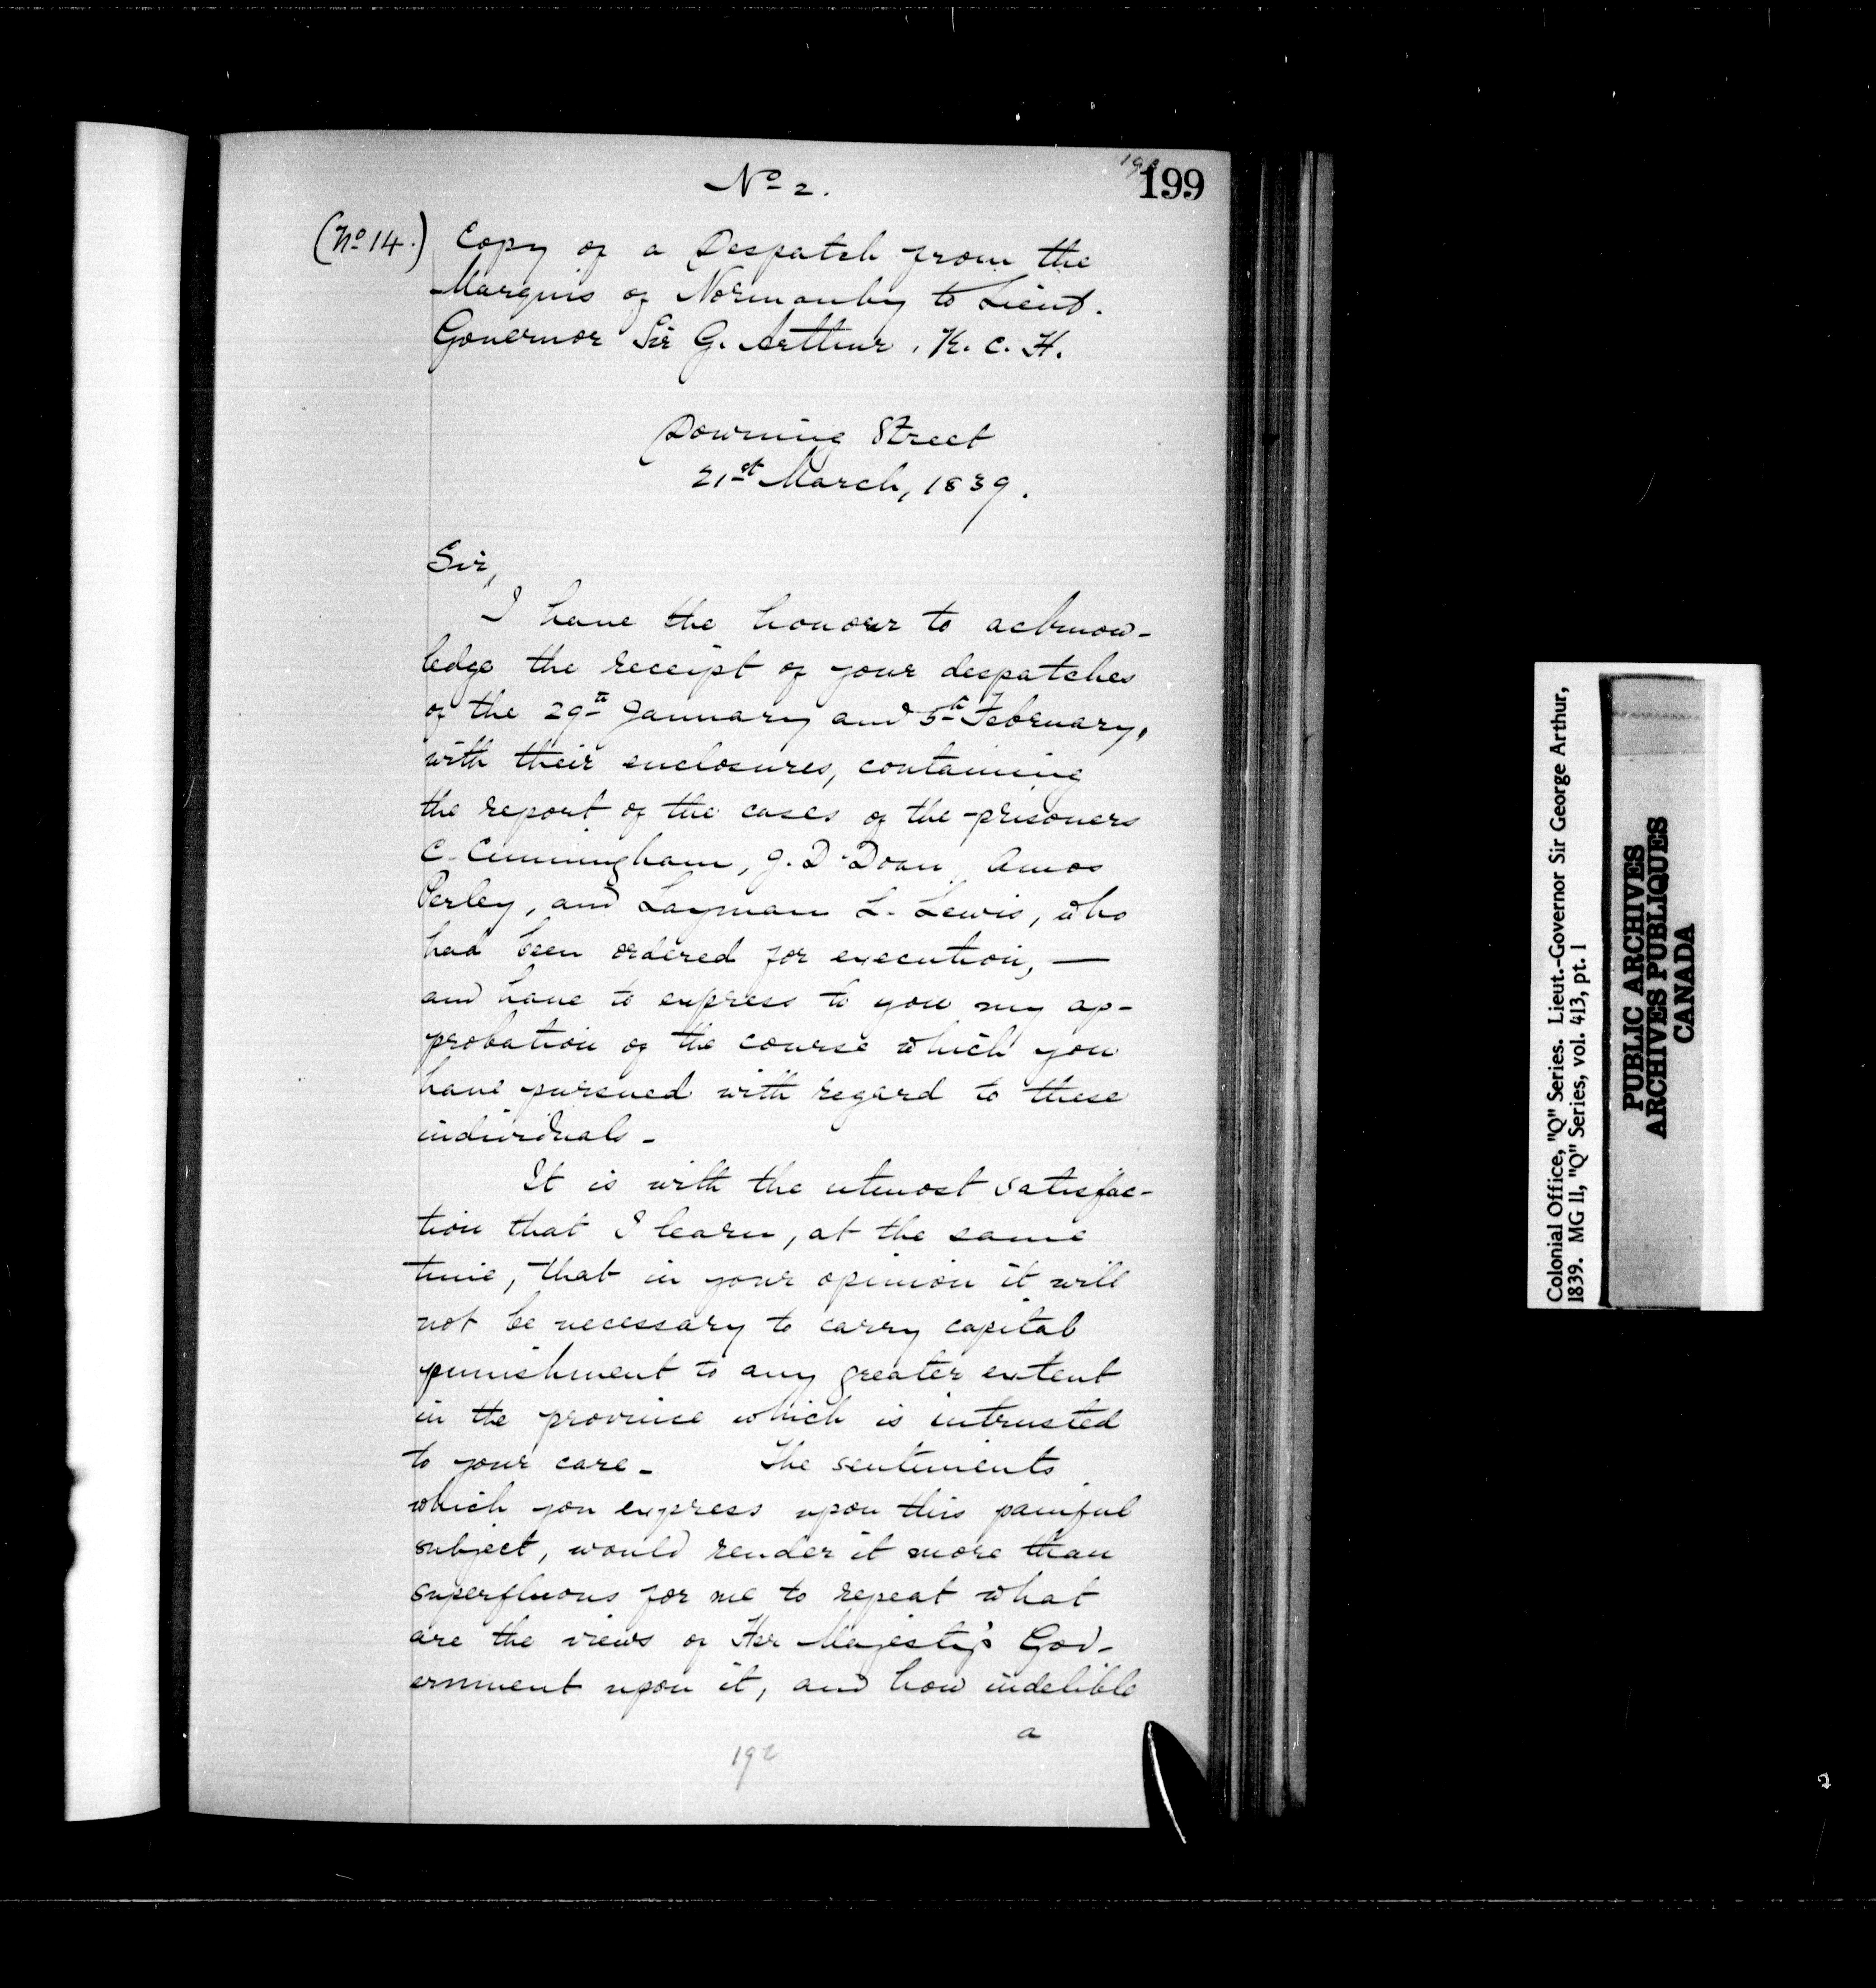 No 2.
199
(No 14.) Copy of a Despatch from the
Marquis of Normanby to Lieut.
Governor Sir G. Arthur, K. C. H.
Downing Street
21st March, 1839.
Sir,
I have the honour to acknow-
ledge the receipt of your despatches
of the 29th January and 5th February,
with their enclosures, containing
the report of the cases of the prisoners
C. Cunningham, J. D. Doan, Amos
Perley, and Layman L. Lewis, who
had been ordered for execution, —
and have to express to you my ap-
probation of the course which you
have pursued with regard to these
individuals -
It is with the utmost satisfac-
tion that I learn, at the same
time, that in your opinion it will
not be necessary to carry capital
punishment to any greater extent
in the province which is intrusted
to your care - The sentiments
which you express upon this painful
subject, would render it more than
superfluous for me to repeat what
are the views of Her Majesty's Gov-
ernment upon it, and how indelible
a
192
Colonial Office, "Q" Series. Lieut.-Governor Sir George Arthur,
1839. MG 11, "Q" Series, vol. 413, pt. 1
PUBLIC ARCHIVES
ARCHIVES PUBLIQUES
CANADA
2